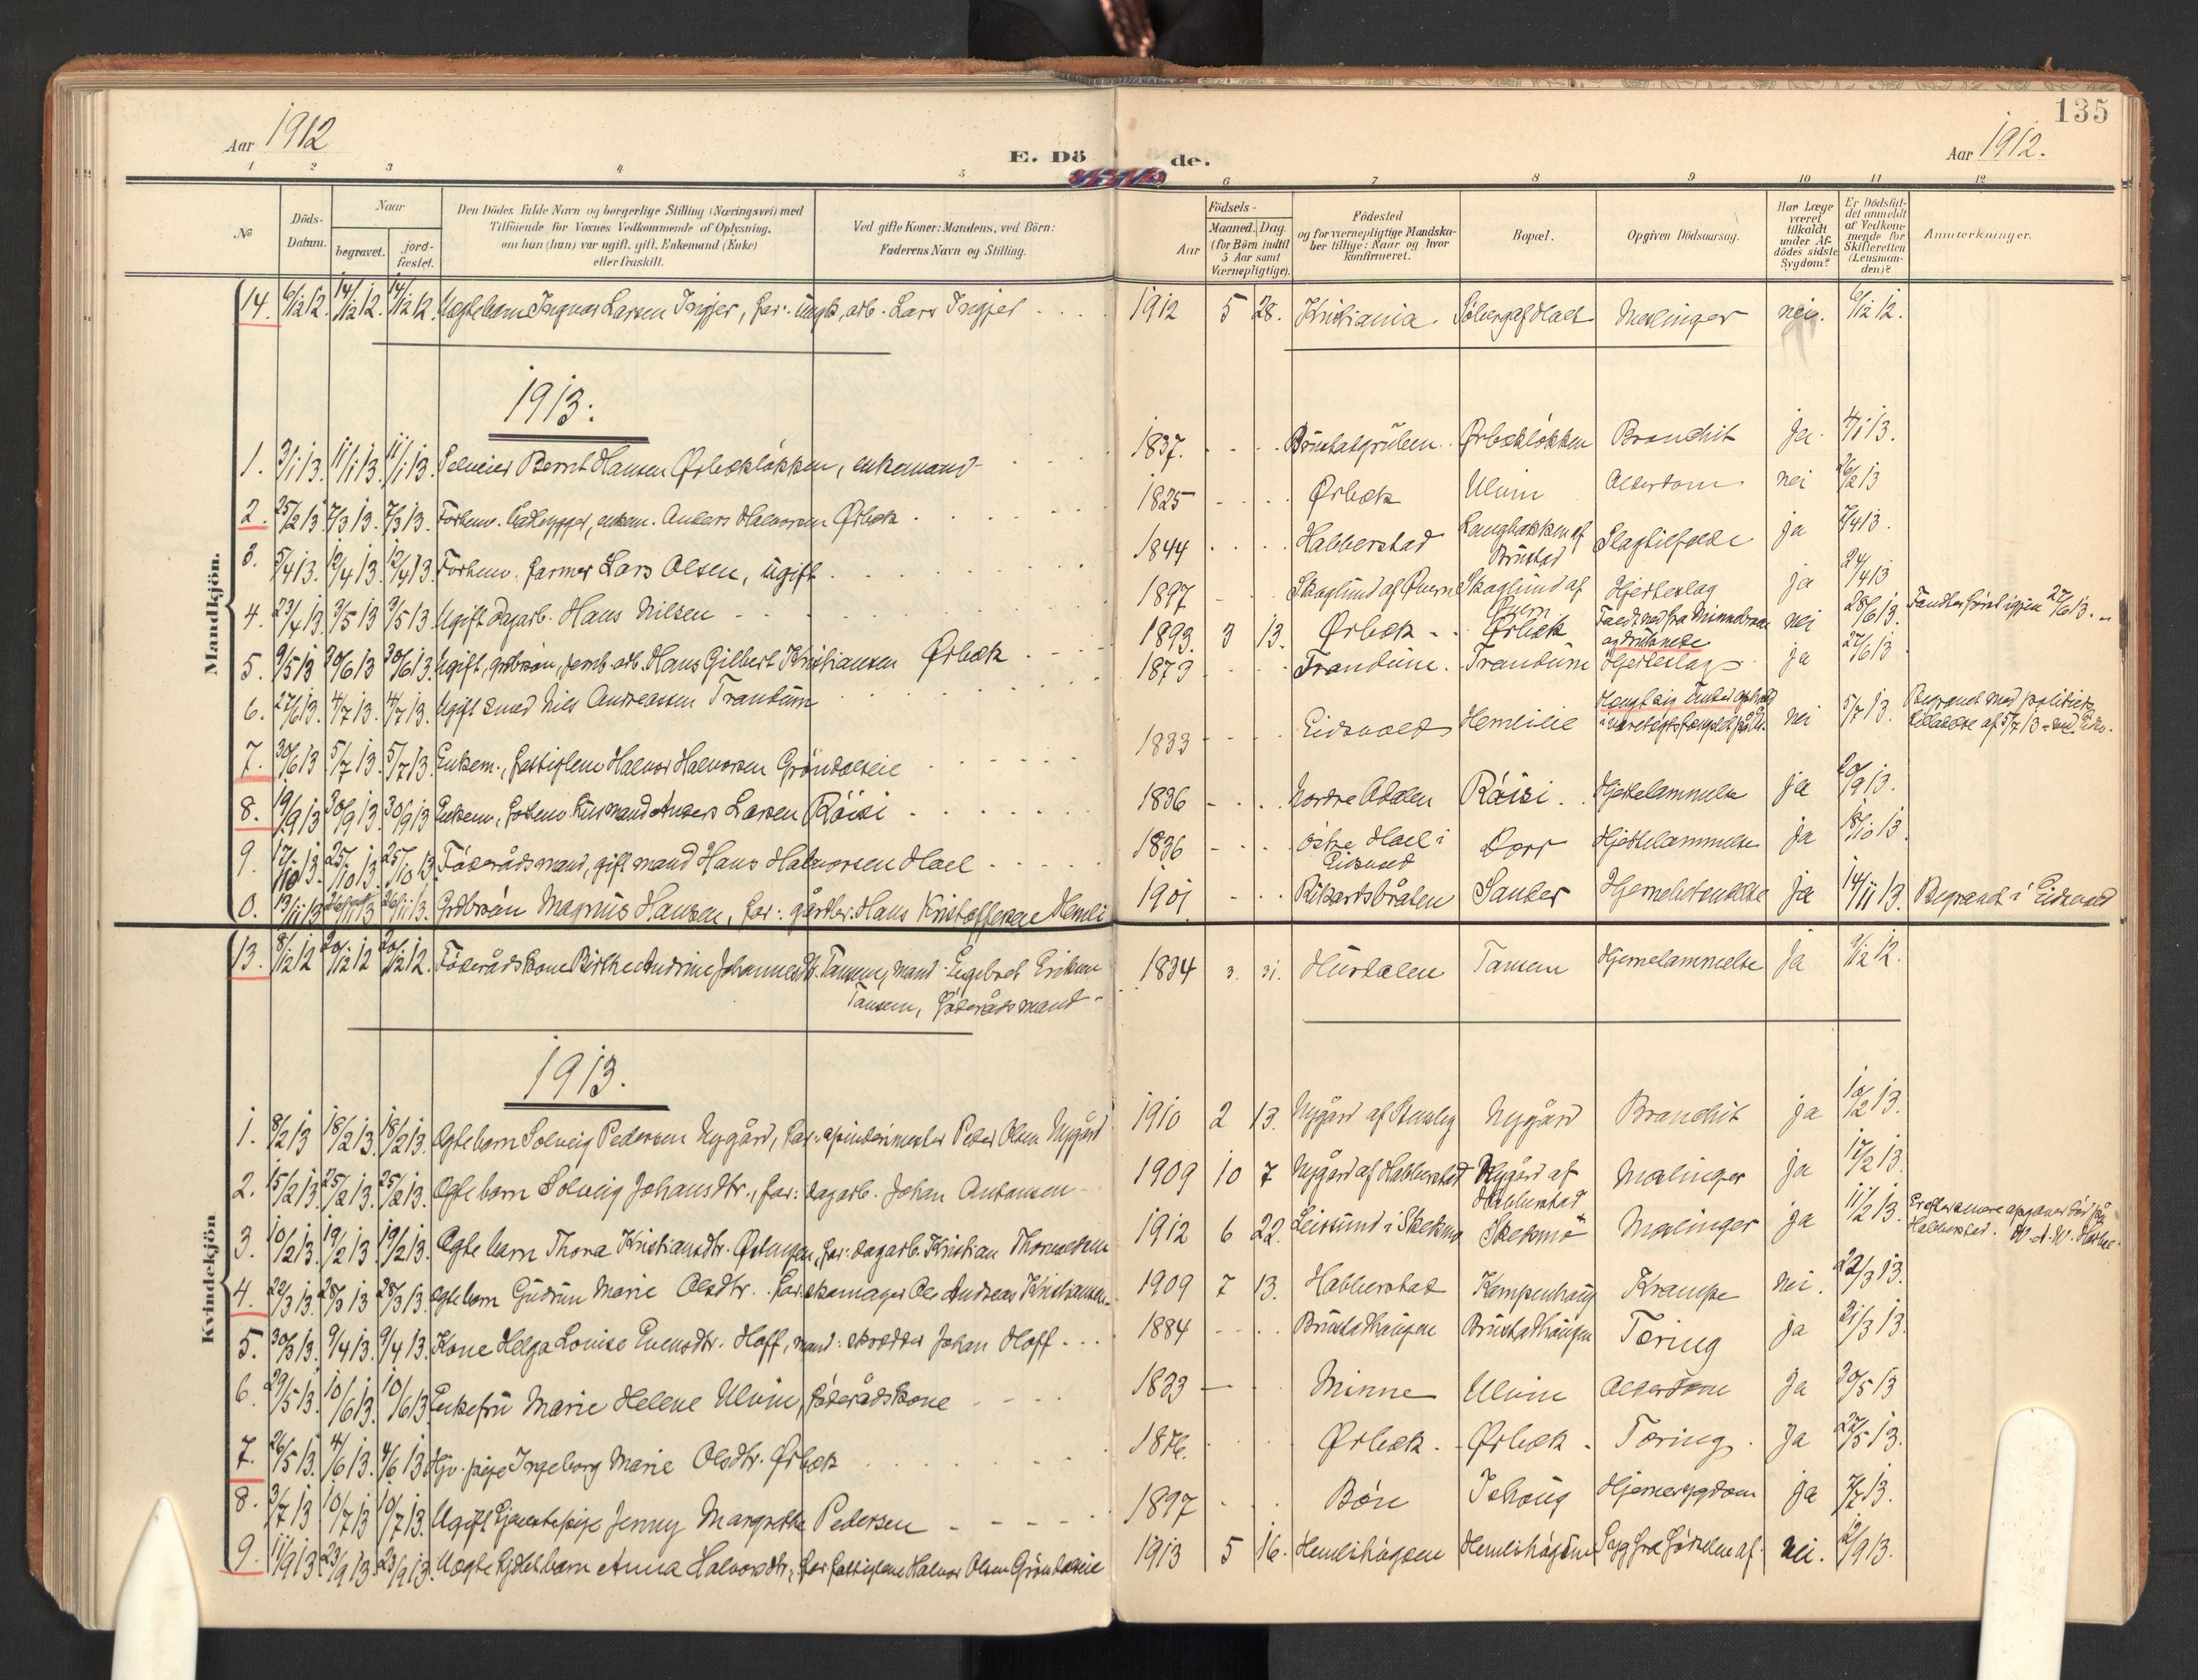 135
Aar 1912
E. Dö de.
Aar 1912.
1 2 3 4 5 6 7 8 9 10 11 12
No
Döds-Datum.
Naar
begravet.
jord-fæstet.
Den Dödes fulde Navn og borgerlige Stilling (Næringsvei) med
Tilföiende for Voxnes Vedkommende af Oplysning,
om han (hun) var ugift, gift, Enkemand (Enke)
eller fraskilt.
Ved gifte Koner: Mandens, ved Börn:
Faderens Navn og Stilling.
Födsels-
Aar
Maaned. Dag.
(for Börn indtil
5 Aar samt
Værnepligtige).
Födested
og for værnepligtige Mandska-
ber tillige: Naar og hvor
konfirmeret.
Bopæl.
Opgiven Dödsaarsag.
Har Læge
været
tilkaldt
under Af-
dödes sidste
Sygdom?
Er Dödsfal-
det anmeldt
af Vedkom-
mende for
Skifteretten
(Lensman-
den)?
Anmærkninger.
Mandkjön.
14. 6/12 12. 14/12 12. 14/12 12. Uægte barn Ingvar Larsen Ingjer, far: ungk., arb. Lars Ingjer 1912 5 28. Kristiania. Meslinger nei. 6/12 12.
1913.
1. 3/1 13. 11/1 13. 11/1 13. Bernt Hansen Ørbækløkken, enkemand 1837. Ørbækløkken Bronchit ja. 4/1 13.
2. 25/2 13. 7/3 13. 7/3 13. Forhenv. enkem. Anders Halvorsen Ørbæk 1825 Ørbæk Ulvin Alderdom nei 26/2 13
3. 5/4 13. 12/4 13. 12/4 13. Forhenv. farmer Lars Olsen, ugift 1844 Habberstad Langbakken af Brustad Slagtilfælde ja 7/4 13.
4. 23/4 13. 3/5 13 3/5 13 Ugift dagarb. Hans Nilsen 1897 Skoglund af Qvern Skoglund af Qvern Hjerteslag ja 24/4 13
5. 9/5 13 30/6 13 30/6 13. Ugift, grdbrsøn, jernb.arb. Hans Gilbert Kristiansen Ørbæk 1893. 3 13. Ørbæk Ørbæk Faldt ned fra Minnebroen og druknede nei 28/6 13. Fandtes først igjen 27/6 13.
6. 27/6 13. 4/7 13. 4/7 13. Ugift smed Nils Andreassen Trandum 1873 Trandum. Trandum Hjerteslag ja 27/6 13
7. 30/6 13 5/7 13. 5/7 13. Enkem., fattiglem Halvor Halvorsen Grøndalseie 1833 Eidsvold Hemlieie Hængt sig under ophold i nei 5/7 13. Begravet med politiets tilladelse af 5/7 13
8. 19/9 13 30/9 13. 30/9 13 Enkem., forhenv. husmand Anders Larsen Røisi 1836 Nordre Odalen Røisi. Hjertelammelse ja 20/9 13.
9. 17/10 13. 25/10 13. 25/10 13. Føderådsmand, gift mand Hans Halvorsen Hoel 1836 østre Hoel i Eidsvold Dorr Hjertelammelse ja 18/10 13.
0. 13/11 13 26/11 13 26/11 13. Grdbrsøn Magnus Hansen, far: gårdbr. Hans Kristoffersen Hemli 1901 Rikardsbråten Sander Hjernebetændelse ja 14/11 13. Begravet i Eidsvold
Kvindekjön
13. 8/12 12 20/12 12 20/12 12. Føderådskone Birthe Andrine Johannesdtr. Tansem, mand: Engebret Eriksen
Tansem, føderådsmand 1834 3. 31. Hurdalen Tansem Hjernelammelse ja 9/12 12.
1913.
1. 8/2 13 18/2 13. 18/2 13. Ægte barn Solveig Pedersen Nygård, far: spinderimester Peder Olsen Nygård 1910 2 13. Nygård af Nygård Bronchit ja 10/2 13.
2. 15/2 13. 25/2 13. 25/2 13. Ægte barn Solveig Johansdtr., far: dagarb. Johan Antonsen 1909 10 7 Nygård af Habberstad Nygård af Habberstad Meslinger ja 17/2 13.
3. 10/2 13. 19/2 13. 19/2 13. Ægte barn Thora Kristiansdtr. far: dagarb. Kristian 1912 6 22. Leirsund i Skedsmo Skedsmo Meslinger ja 11/2 13. Habberstad.
4. 22/3 13. 28/3 13 28/3 13. Ægte barn Gudrun Marie Olsdtr. far: skomager Ole Andreas Kristiansen 1909 7 13. Habberstad Kampenhaug Krampe nei. 22/3 13.
5. 30/3 13. 9/4 13. 9/4 13. Kone Helga Louise Evensdtr. Hoff, mand: skrædder Johan Hoff 1884 Brustadhaugen Brustadhaugen Tæring ja 31/3 13.
6. 29/5 13. 10/6 13. 10/6 13 Enkefru Marie Helene Ulvin, føderådskone 1833 Minne Ulvin Alderdom ja 30/5 13
7. 26/5 13. 4/6 13. 4/6 13 Hjv. pige Ingeborg Marie Olsdtr. Ørbæk 1876. Ørbæk. Ørbæk. Tæring. ja 27/5 13.
8. 3/7 13 10/7 13 10/7 13. Ugift tjenestepige Jenny Margrethe Pedersen 1897 Bøn Hjernesygdom ja 7/7 13.
9. 11/9 13 23/9 13. 23/9 13. Uægte barn Anna Halvorsdtr., far fattiglem Halvor Olsen Grøndalseie 1913 5 16. Hemlihågaen Hemlihågaen Syg fra fødselen af nei. 12/9 13.